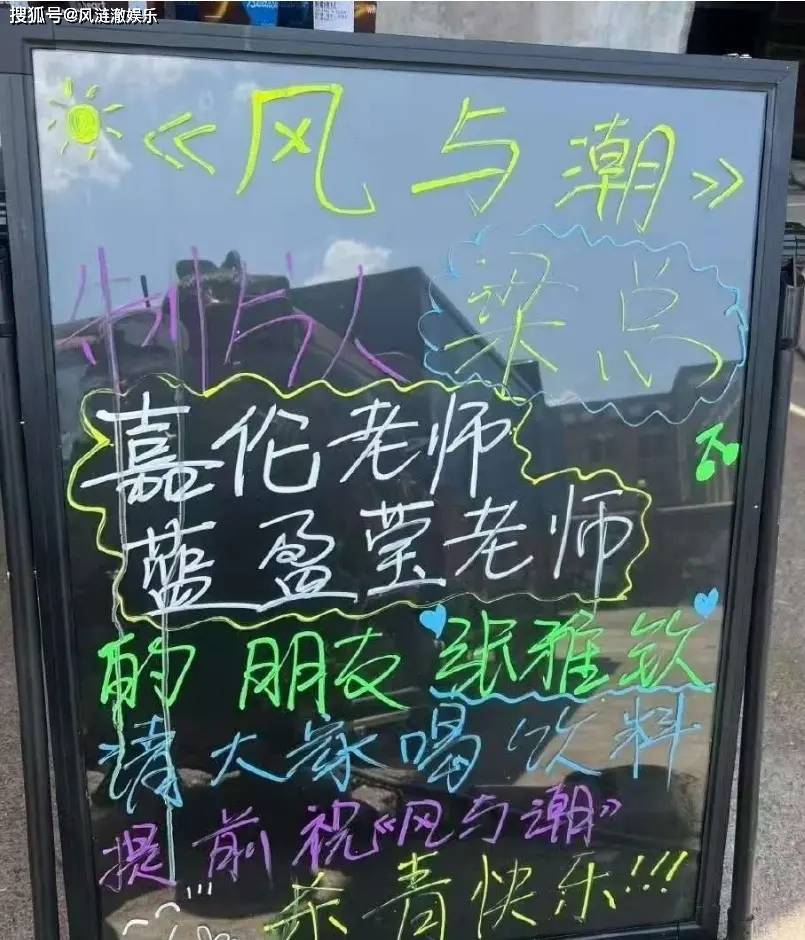 搜狐号@风涟澈娱乐
《风与潮》
制片人 梁总
嘉伦老师
蓝盈莹老师
的朋友 张雅钦
请大家喝饮料
提前祝《风与潮》
杀青快乐!!!